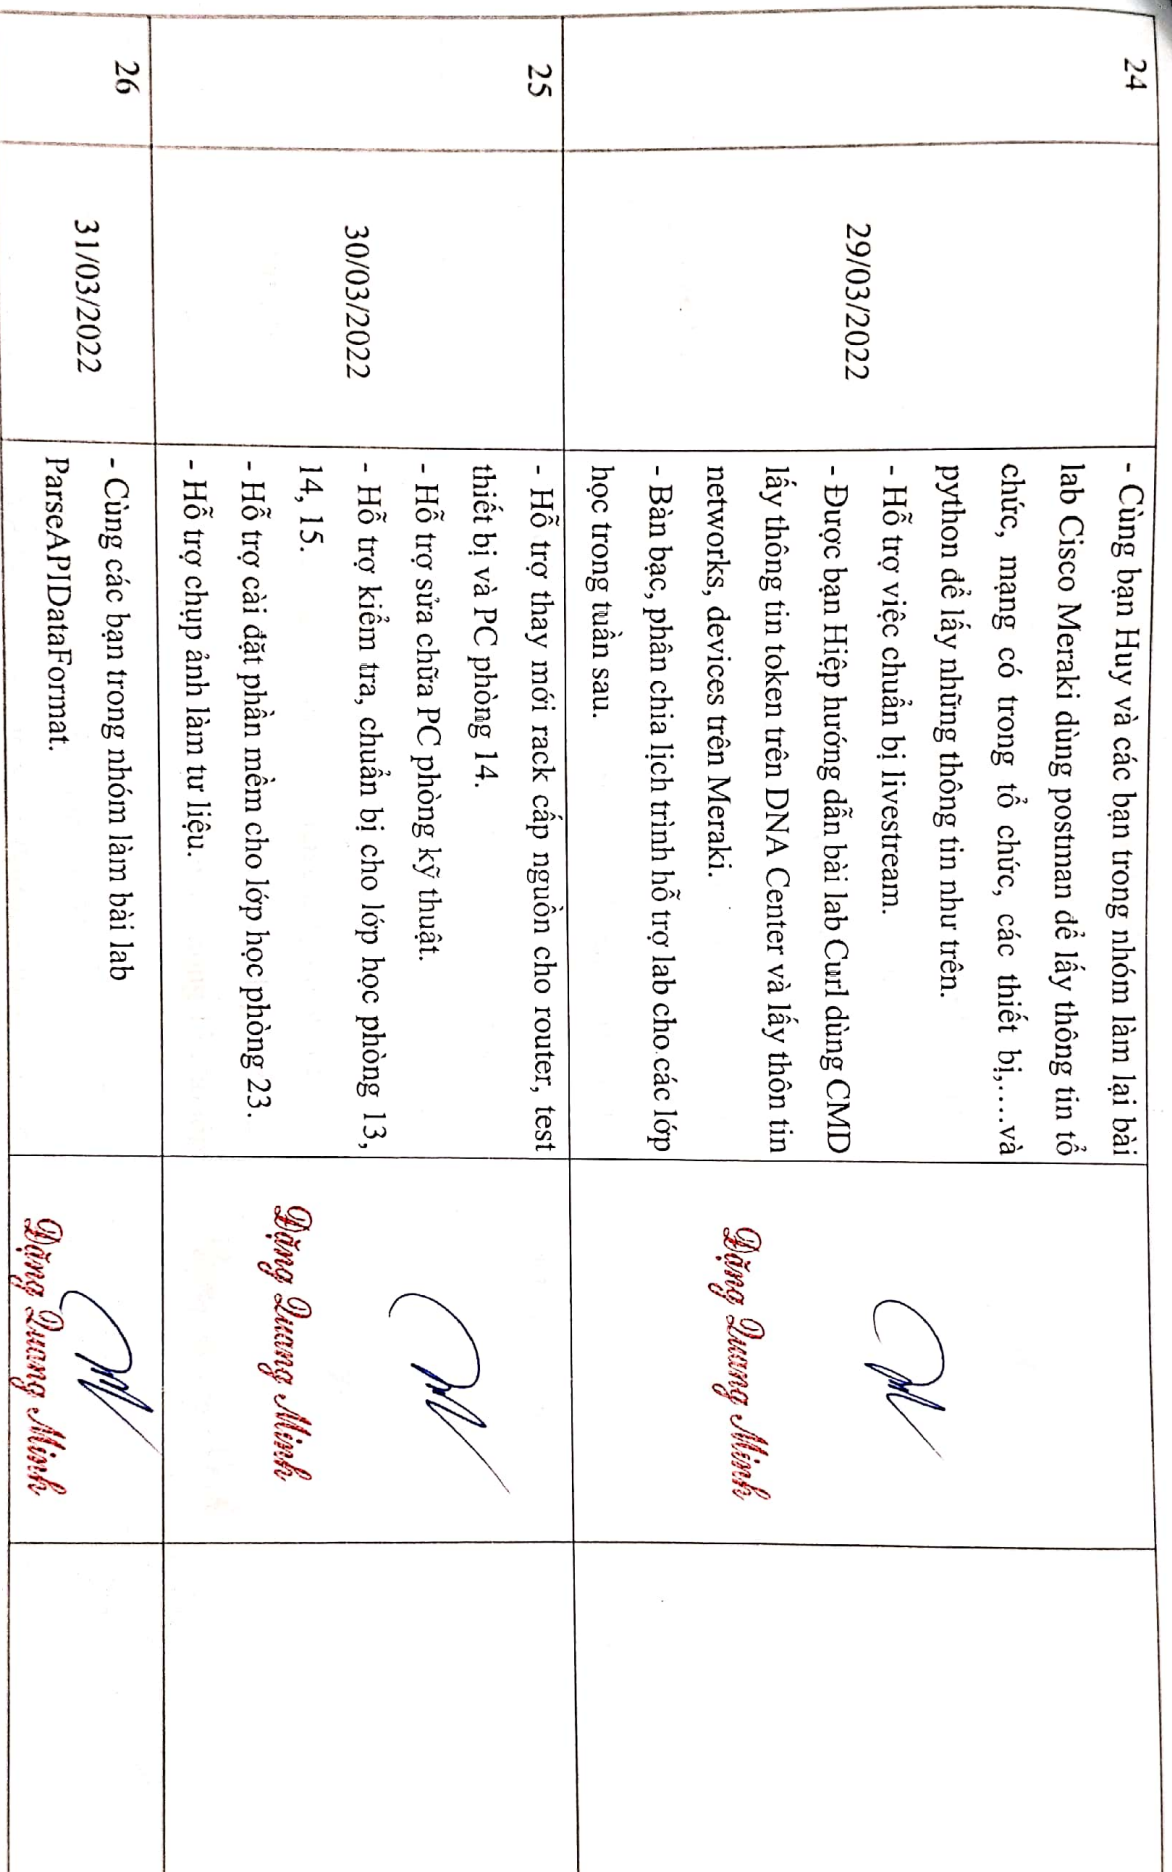 24
29/03/2022
- Cùng bạn Huy và các bạn trong nhóm làm lại bài
lab Cisco Meraki dùng postman để lấy thông tin tổ
chức, mạng có trong tổ chức, các thiết bị,....và
python để lấy những thông tin như trên.
- Hỗ trợ việc chuẩn bị livestream.
- Được bạn Hiệp hướng dẫn bài lab Curl dùng CMD
lấy thông tin token trên DNA Center và lấy thôn tin
networks, devices trên Meraki.
- Bàn bạc, phân chia lịch trình hỗ trợ lab cho các lớp
học trong tuần sau.
Đặng Quang Minh
25
30/03/2022
- Hỗ trợ thay mới rack cấp nguồn cho router, test
thiết bị và PC phòng 14.
- Hỗ trợ sửa chữa PC phòng kỹ thuật.
- Hỗ trợ kiểm tra, chuẩn bị cho lớp học phòng 13,
14, 15.
- Hỗ trợ cài đặt phần mềm cho lớp học phòng 23.
- Hỗ trợ chụp ảnh làm tư liệu.
Đặng Quang Minh
26
31/03/2022
- Cùng các bạn trong nhóm làm bài lab
ParseAPIDataFormat.
Đặng Quang Minh